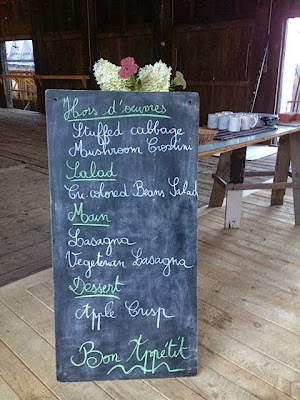 Hors d'oeuvres
Stuffed cabbage
Mushroom Crostini
Salad
Tri-colored Beans Salad
Main
Lasagna
Vegeterian Lasagna
Dessert
Apple Crisp
Bon Appétit